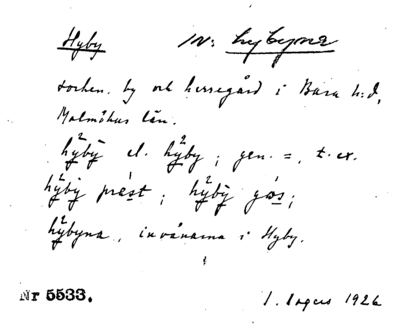 Hyby IN: hybyna
socken, by och herregård i Bara h:d,
Malmöhus län.
hỳby el. hỳby; gen. =, t. ex.
hỳby prèst; hỳby gås;
hỳbyna, invånarna i Hyby.
Nr 5533. 1926